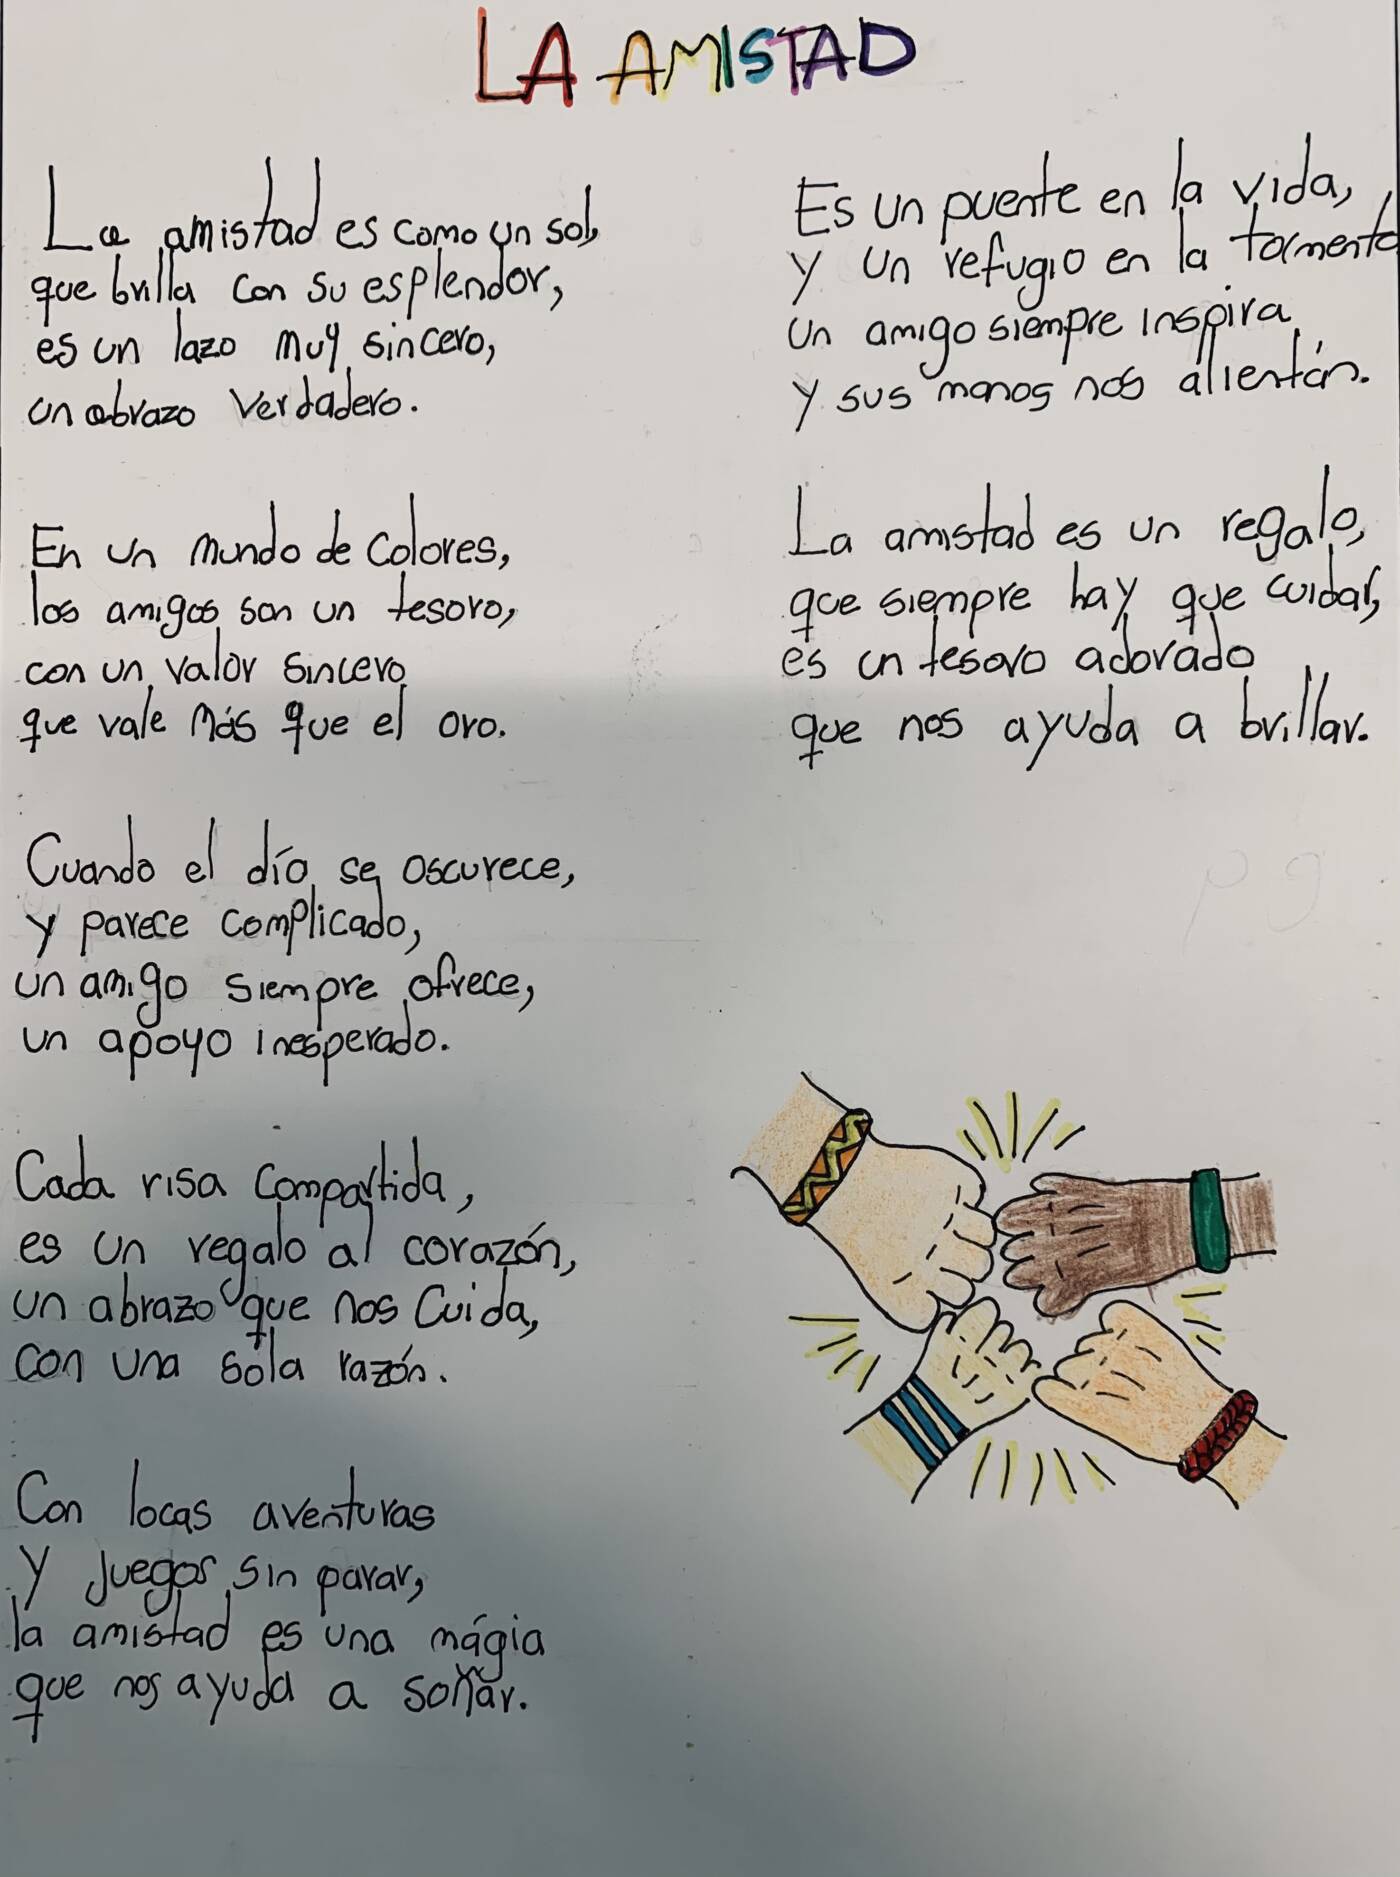 LA AMISTAD
La amistad es como un sol,
que brilla con su esplendor,
es un lazo muy sincero,
un abrazo verdadero.
En un mundo de colores,
los amigos son un tesoro,
con un valor sincero
que vale más que el oro.
Cuando el día se oscurece,
y parece complicado,
un amigo siempre ofrece,
un apoyo inesperado.
Cada risa compartida,
es un regalo al corazón,
un abrazo que nos cuida,
con una sola razón.
Con locas aventuras
y juegos sin parar,
la amistad es una mágia
que nos ayuda a soñar.
Es un puente en la vida,
y un refugio en la tormenta
un amigo siempre inspira
y sus manos nos alientán.
La amistad es un regalo,
que siempre hay que cuidar,
es un tesoro adorado
que nos ayuda a brillar.